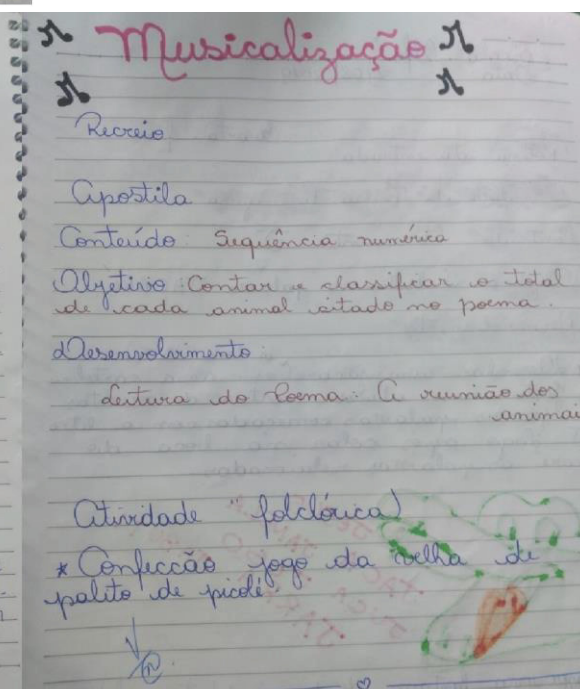 Musicalização
Recreio
Apostila
Conteúdo: Sequência numérica
Objetivo: Contar e classificar o total
de cada animal citado no poema.
Desenvolvimento:
Leitura do Poema: A reunião dos
animai
Atividade "folclórica)
* Confecção jogo da velha de
palito de picolé.